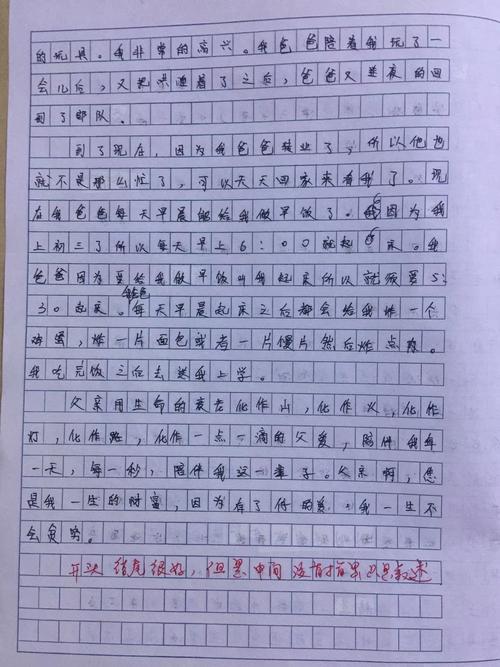 的玩具。我非常的高兴。我爸爸陪着我玩了一
会儿后，又把哄睡着了之后，爸爸又连夜的回
到了部队。
到了现在，因为我爸爸转业了，所以他也
就不是那么忙了，可以天天回家来看我了。现
在我爸爸每天早晨能给我做早饭了。因为我
上初三了所以每天早上6:00就起床。我
爸爸因为要给我做早饭叫我起床所以就须要5:
30起床。我爸爸每天早晨起床之后都会给我炸一个
鸡蛋，炸一片面包或者一片馒片然后炸点
我吃完饭之后去送我上学。
父亲用生命的衰老化作山，化作火，化作
灯，化作路，化作一点一滴的父爱，陪伴我每
一天，每一秒，陪伴我这一辈子。父亲啊，您
是我一生的财富，因为有了你的爱，我一生不
会贫穷。
开头结尾很好，但是中间没有描写只是叙述